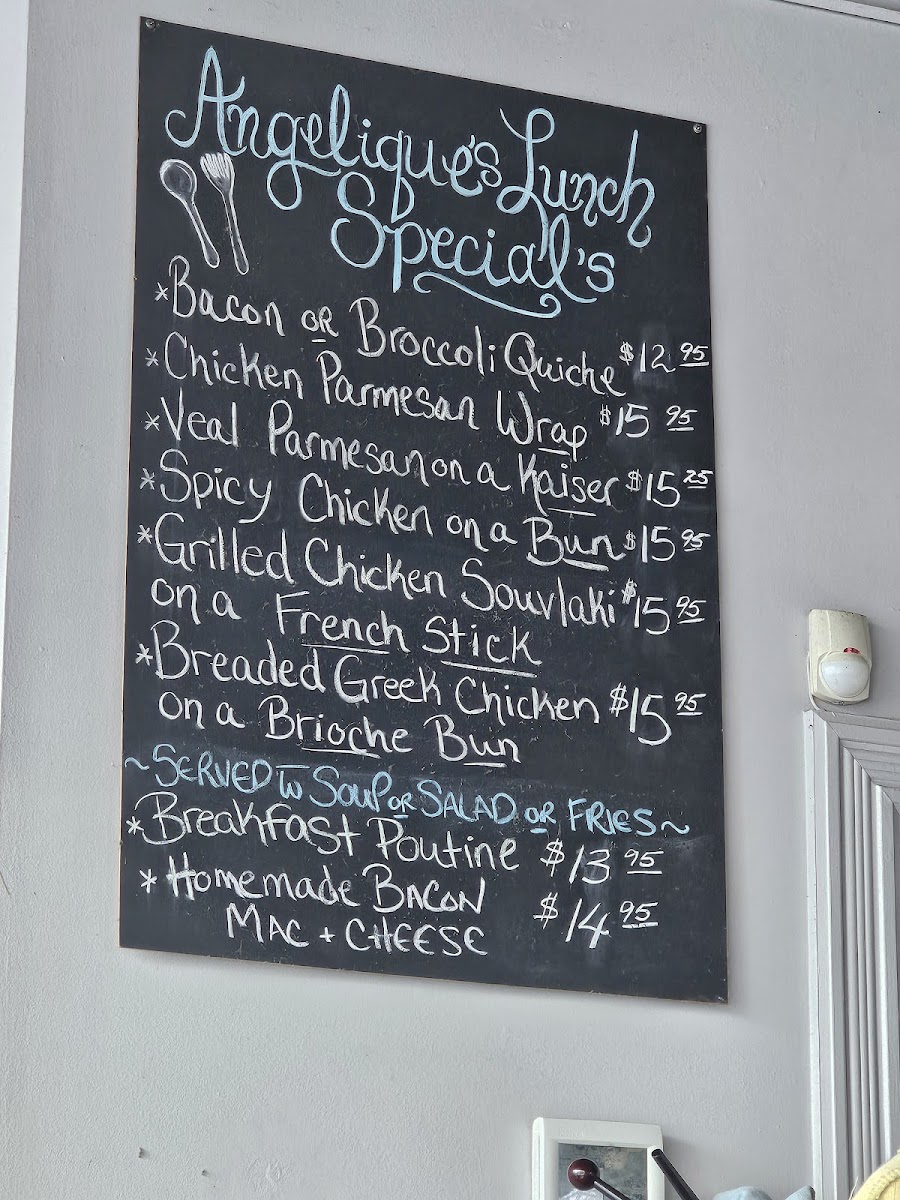 Angelique's Lunch
Special's
*Bacon OR Broccoli Quiche $12 95
*Chicken Parmesan Wrap $15 95
*Veal Parmesan on a Kaiser $15 25
*Spicy Chicken on a Bun $15 95
*Grilled Chicken Souvlaki $15 95
on a French Stick
*Breaded Greek Chicken $15 95
on a Brioche Bun
~SERVED W SOUP OR SALAD OR FRIES~
*Breakfast Poutine $13 95
*Homemade BACON $14 95
MAC + CHEESE